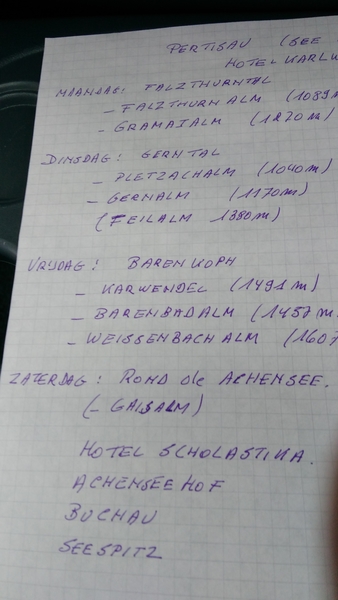 PERTISAU (SEE
HOTEL KARLW
MAANDAG: FALZTHURNTAL
- FALZTHURN ALM (1089m
- GRAMAI ALM (1270 m)
DINSDAG: GERNTAL
- PLETZACHALM (1040m)
- GERNALM (1170 m)
(FEILALM 1380m)
VRIJDAG: BARENKOPH
- KARWENDEL (1491 m)
- BARENBADALM (1457 m
- WEISSENBACH ALM (1607
ZATERDAG: ROND de ACHENSEE.
(- GAISALM)
HOTEL SCHOLASTIKA.
ACHENSEE HOF
BUCHAU
SEESPITZ